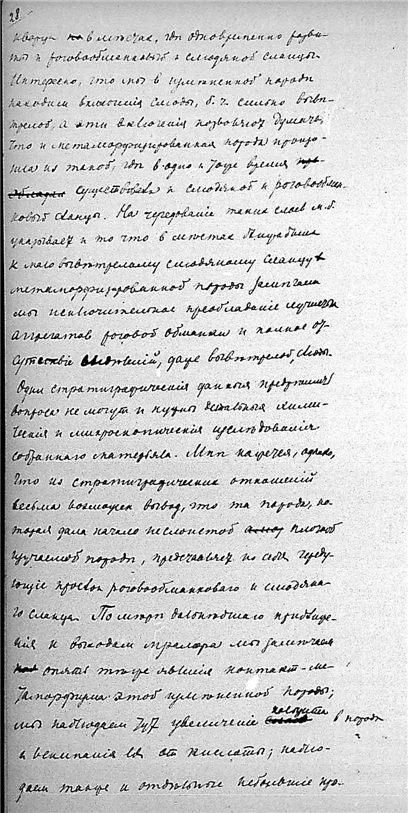 28
кварца в мѣстах, гдѣ одновременно разви-
ты и роговообманковый и слюдяной сланцы.
Интересно, что мы в измѣненной породѣ
находим включенія слюды, б. ч. сильно вывѣ-
трѣлой, а эти включенія позволяют думать,
что и метаморфизированная порода произо-
шла из такой, гдѣ в одно и тоже время
существовали и слюдяной и роговообман-
ковый сланцы. На чередованіе таких слоев м. б.
указывает и то что в мѣстах
к мало вывѣтрѣлому слюдяному сланцу
метаморфизированной породы замѣчаем
мы исключительное преобладаніе лучистых
агрегатов роговой обманки и полное от-
сутствіе, даже вывѣтрѣлой, слюды.
Одни стратиграфическія данныя предрѣшить
вопроса не могут и нужны детальныя хими-
ческія и микроскопическія изслѣдованія
собраннаго матерьяла. Мнѣ кажется, однако,
что из стратиграфических отношеній
весьма возможен вывод, что та порода, ко-
торая дала начало неслоистой плотной
изучаемой породѣ, представляет из себя череду-
ющіе прослои роговообманковаго и слюдяна-
го сланца. По мѣрѣ дальнѣйшаго приближе-
нія к выходам мрамора мы замѣчаем
опять тѣже явленія контакт-ме-
таморфизма этой измѣненной породы;
мы наблюдаем тут увеличеніе кальцита в породѣ
и вскипанія ея от кислоты; наблю-
даем также и отдѣльные небольшіе про-